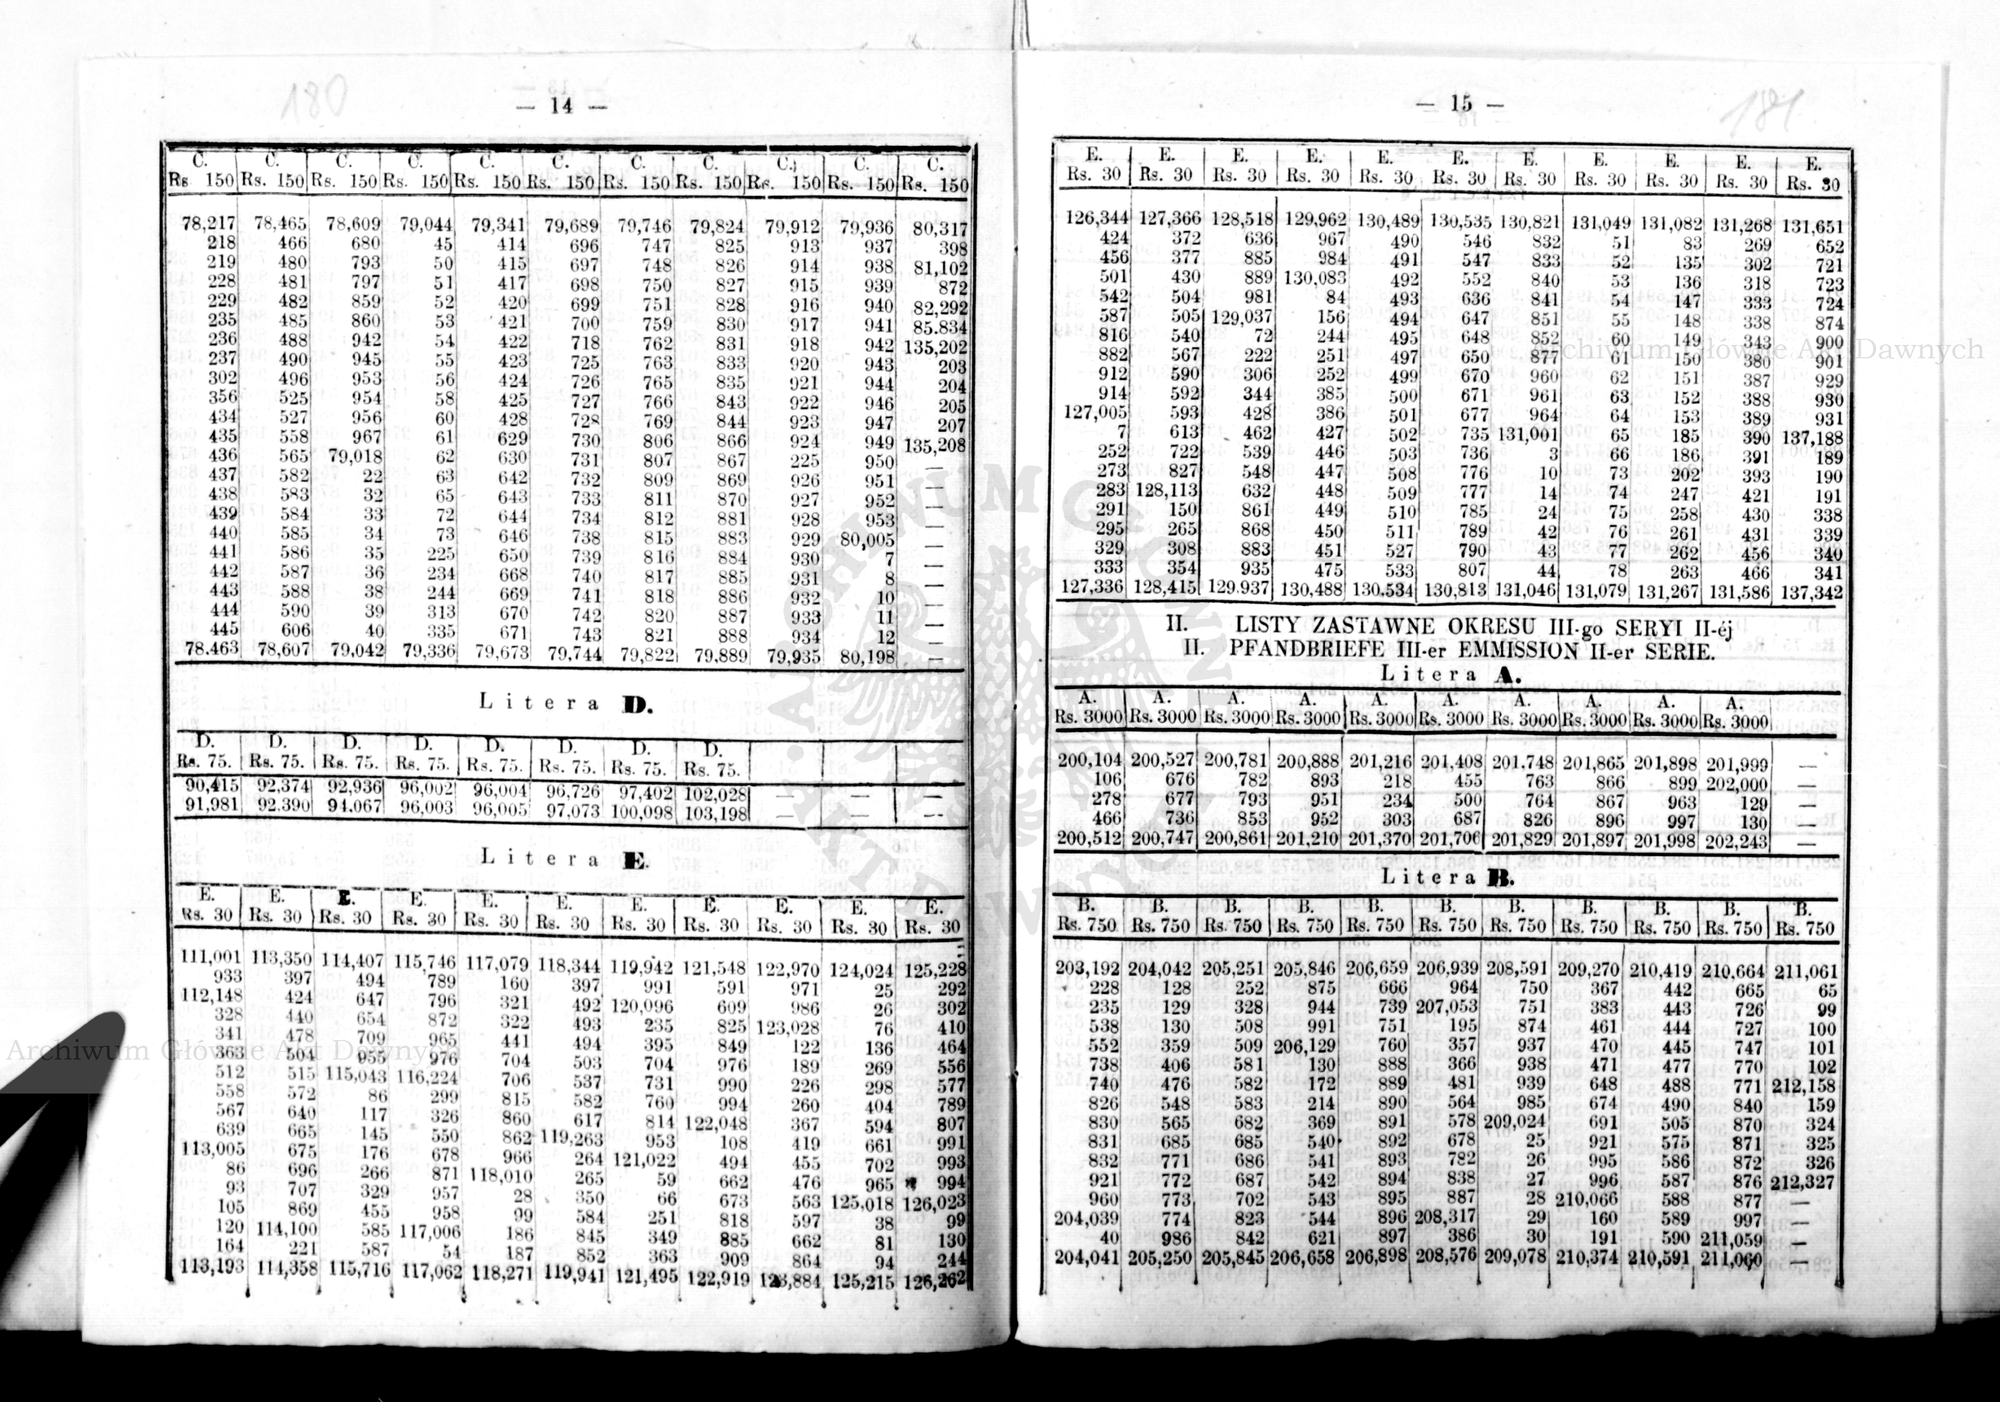 180
— 14 —
C. C. C. C. C. C. C. C. C. C. C.
Rs 150 Rs. 150 Rs. 150 Rs. 150 Rs. 150 Rs. 150 Rs. 150 Rs. 150 Rs. 150 Rs. 150 Rs. 150
78,217 78,465 78,609 79,044 79,341 79,689 79,746 79,824 79,912 79,936 80,317
218 466 680 45 414 696 747 825 913 937 398
219 480 793 50 415 697 748 826 914 938 81,102
228 481 797 51 417 698 750 827 915 939 872
229 482 859 52 420 699 751 828 916 940 82,292
235 485 860 53 421 700 759 830 917 941 85.834
236 488 942 54 422 718 762 831 918 942 135,202
237 490 945 55 423 725 763 833 920 943 203
302 496 953 56 424 726 765 835 921 944 204
356 525 954 58 425 727 766 843 922 946 205
434 527 956 60 428 728 769 844 923 947 207
435 558 967 61 629 730 806 866 924 949 135,208
436 565 79,018 62 630 731 807 867 225 950 —
437 582 22 63 642 732 809 869 926 951 —
438 583 32 65 643 733 811 870 927 952 —
439 584 33 72 644 734 812 881 928 953 —
440 585 34 73 646 738 815 883 929 80,005 —
441 586 35 225 650 739 816 884 930 7 —
442 587 36 234 668 740 817 885 931 8 —
443 588 38 244 669 741 818 886 932 10 —
444 590 39 313 670 742 820 887 933 11 —
445 606 40 335 671 743 821 888 934 12 —
78.463 78,607 79,042 79,336 79,673 79,744 79,822 79,889 79,935 80,198 —
Litera D.
D. D. D. D. D. D. D. D.
Rs. 75. Rs. 75. Rs. 75. Rs. 75. Rs. 75. Rs. 75. Rs. 75. Rs. 75.
90,415 92,374 92,936 96,002 96,004 96,726 97,402 102,028 — — —
91,981 92.390 94.067 96,003 96,005 97,073 100,098 103,198 — — —
Litera E.
E. E. E. E. E. E. E. E. E. E. E.
Rs. 30 Rs. 30 Rs. 30 Rs. 30 Rs. 30 Rs. 30 Rs. 30 Rs. 30 Rs. 30 Rs. 30 Rs. 30
111,001 113,350 114,407 115,746 117,079 118,344 119,942 121,548 122,970 124,024 125,228
933 397 494 789 160 397 991 591 971 25 292
112,148 424 647 796 321 492 120,096 609 986 26 302
328 440 654 872 322 493 235 825 123,028 76 410
341 478 709 965 441 494 395 849 122 136 464
363 504 955 976 704 503 704 976 189 269 556
512 515 115,043 116,224 706 537 731 990 226 298 577
558 572 86 299 815 582 760 994 260 404 789
567 640 117 326 860 617 814 122,048 367 594 807
639 665 145 550 862 119,263 953 108 419 661 991
113,005 675 176 678 966 264 121,022 494 455 702 993
86 696 266 871 118,010 265 59 662 476 965 994
93 707 329 957 28 350 66 673 563 125,018 126,023
105 869 455 958 99 584 251 818 597 38 99
120 114,100 585 117,006 186 845 349 885 662 81 130
164 221 587 54 187 852 363 909 864 94 244
113,193 114,358 115,716 117,062 118,271 119,941 121,495 122,919 123,884 125,215 126,262
181
— 15 —
E. E. E. E. E. E. E. E. E. E. E.
Rs. 30 Rs. 30 Rs. 30 Rs. 30 Rs. 30 Rs. 30 Rs. 30 Rs. 30 Rs. 30 Rs. 30 Rs. 30
126,344 127,366 128,518 129,962 130,489 130,535 130,821 131,049 131,082 131,268 131,651
424 372 636 967 490 546 832 51 83 269 652
456 377 885 984 491 547 833 52 135 302 721
501 430 889 130,083 492 552 840 53 136 318 723
542 504 981 84 493 636 841 54 147 333 724
587 505 129,037 156 494 647 851 55 148 338 874
816 540 72 244 495 648 852 60 149 343 900
882 567 222 251 497 650 877 61 150 380 901
912 590 306 252 499 670 960 62 151 387 929
914 592 344 385 500 671 961 63 152 388 930
127,005 593 428 386 501 677 964 64 153 389 931
7 613 462 427 502 735 131,001 65 185 390 137,188
252 722 539 446 503 736 3 66 186 391 189
273 827 548 447 508 776 10 73 202 393 190
283 128,113 632 448 509 777 14 74 247 421 191
291 150 861 449 510 785 24 75 258 430 338
295 265 868 450 511 789 42 76 261 431 339
329 308 883 451 527 790 43 77 262 456 340
333 354 935 475 533 807 44 78 263 466 341
127,336 128,415 129.937 130,488 130.534 130,813 131,046 131,079 131,267 131,586 137,342
II. LISTY ZASTAWNE OKRESU III-go SERYI II-éj
II. PFANDBRIEFE III-er EMMISSION II-er SERIE.
Litera A.
A. A. A. A. A. A. A. A. A. A.
Rs. 3000 Rs. 3000 Rs. 3000 Rs. 3000 Rs. 3000 Rs. 3000 Rs. 3000 Rs. 3000 Rs. 3000 Rs. 3000
200,104 200,527 200,781 200,888 201,216 201,408 201.748 201,865 201,898 201,999 —
106 676 782 893 218 455 763 866 899 202,000 —
278 677 793 951 234 500 764 867 963 129 —
466 736 853 952 303 687 826 896 997 130 —
200,512 200,747 200,861 201,210 201,370 201,706 201,829 201,897 201,998 202,243 —
Litera B.
B. B. B. B. B. B. B. B. B. B. B.
Rs. 750 Rs. 750 Rs. 750 Rs. 750 Rs. 750 Rs. 750 Rs. 750 Rs. 750 Rs. 750 Rs. 750 Rs. 750
203,192 204,042 205,251 205,846 206,659 206,939 208,591 209,270 210,419 210,664 211,061
228 128 252 875 666 964 750 367 442 665 65
235 129 328 944 739 207,053 751 383 443 726 99
538 130 508 991 751 195 874 461 444 727 100
552 359 509 206,129 760 357 937 470 445 747 101
738 406 581 130 888 366 938 471 477 770 102
740 476 582 172 889 481 939 648 488 771 212,158
826 548 583 214 890 564 985 674 490 840 159
830 565 682 369 891 578 209,024 691 505 870 324
831 685 685 540 892 678 25 921 575 871 325
832 771 686 541 893 782 26 995 586 872 326
921 772 687 542 894 838 27 996 587 876 212,327
960 773 702 543 895 887 28 210,066 588 877 —
204,039 774 823 544 896 208,317 29 160 589 997 —
40 986 842 621 897 386 30 191 590 211,059 —
204,041 205,250 205,845 206,658 206,898 208,576 209,078 210,374 210,591 211,060 —